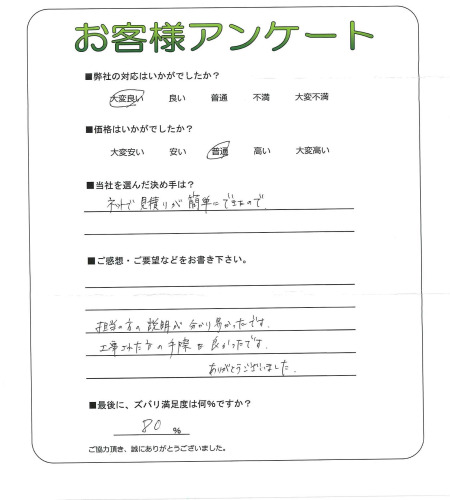 お客様アンケート
■弊社の対応はいかがでしたか?
大変良い 良い 普通 不満 大変不満
■価格はいかがでしたか?
大変安い 安い 普通 高い 大変高い
■当社を選んだ決め手は?
ネットで見積りが簡単にできたので.
■ご感想・ご要望などをお書き下さい。
担当の方の説明が分かり易かったです.
工事された方の手際も良かったです.
ありがとうございました.
■最後に、ズバリ満足度は何%ですか?
80 %
ご協力頂き、誠にありがとうございました。